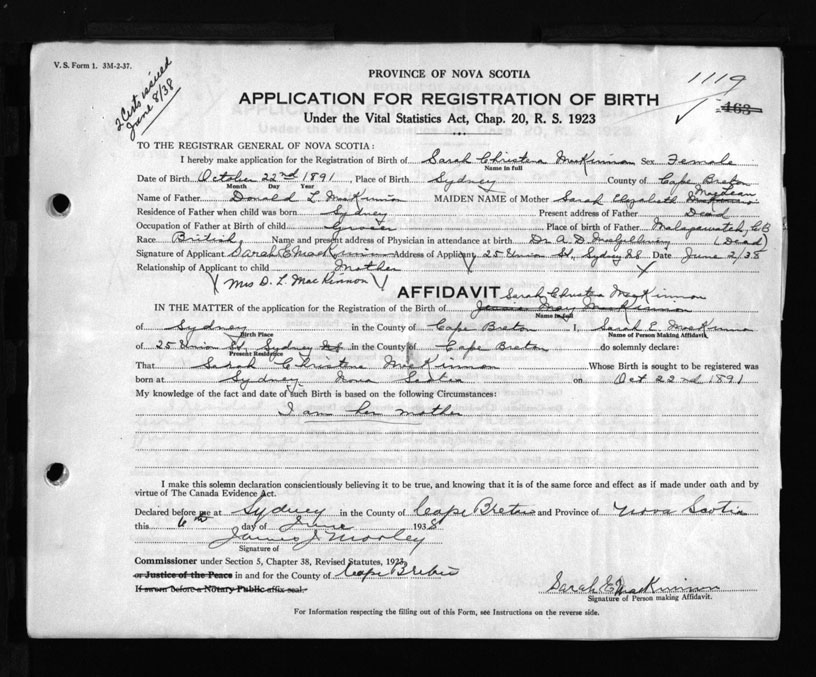 V. S. Form 1. 3M-2-37.
2 Certs issued
June 8/38
PROVINCE OF NOVA SCOTIA
1119
463
APPLICATION FOR REGISTRATION OF BIRTH
Under the Vital Statistics Act, Chap. 20, R. S. 1923
TO THE REGISTRAR GENERAL OF NOVA SCOTIA:
I hereby make application for the Registration of Birth of Sarah Christena MacKinnon Sex Female
Name in full
Date of Birth October 22nd 1891, Place of Birth Sydney County of Cape Breton
Month Day Year
MacLean
Name of Father Donald L. MacKinnon MAIDEN NAME of Mother Sarah Elizabeth
Residence of Father when child was born Sydney Present address of Father Dead
Occupation of Father at Birth of child Grocer Place of birth of Father Malagawatch, CB
Race British, Name and present address of Physician in attendance at birth Dr. A. D. (Dead)
Signature of Applicant Sarah E MacKinnon Address of Applicant, 25 Union St, Sydney NS Date June 2/38
Relationship of Applicant to child Mother
(Mrs D. L. MacKinnon)
AFFIDAVIT Sarah Christena MacKinnon
IN THE MATTER of the application for the Registration of the Birth of May MacKinnon
Name in full
of Sydney in the County of Cape Breton I, Sarah E. MacKinnon
Birth Place Name of Person Making Affidavit
of 25 Union St, Sydney NS in the County of Cape Breton do solemnly declare:
Present Residence
That Sarah Christene MacKinnon Whose Birth is sought to be registered was
born at Sydney, Nova Scotia on Oct 22nd 1891
My knowledge of the fact and date of such Birth is based on the following Circumstances:
I am her mother
I make this solemn declaration conscientiously believing it to be true, and knowing that it is of the same force and effect as if made under oath and by
virtue of The Canada Evidence Act.
Declared before me at Sydney in the County of Cape Breton and Province of Nova Scotia
this 6th day of June 1938
James J Morley
Signature of
Commissioner under Section 5, Chapter 38, Revised Statutes, 1923,
or Justice of the Peace in and for the County of Cape Breton
If sworn before a Notary Public affix seal.
Sarah E MacKinnon
Signature of Person making Affidavit.
For Information respecting the filling out of this Form, see Instructions on the reverse side.